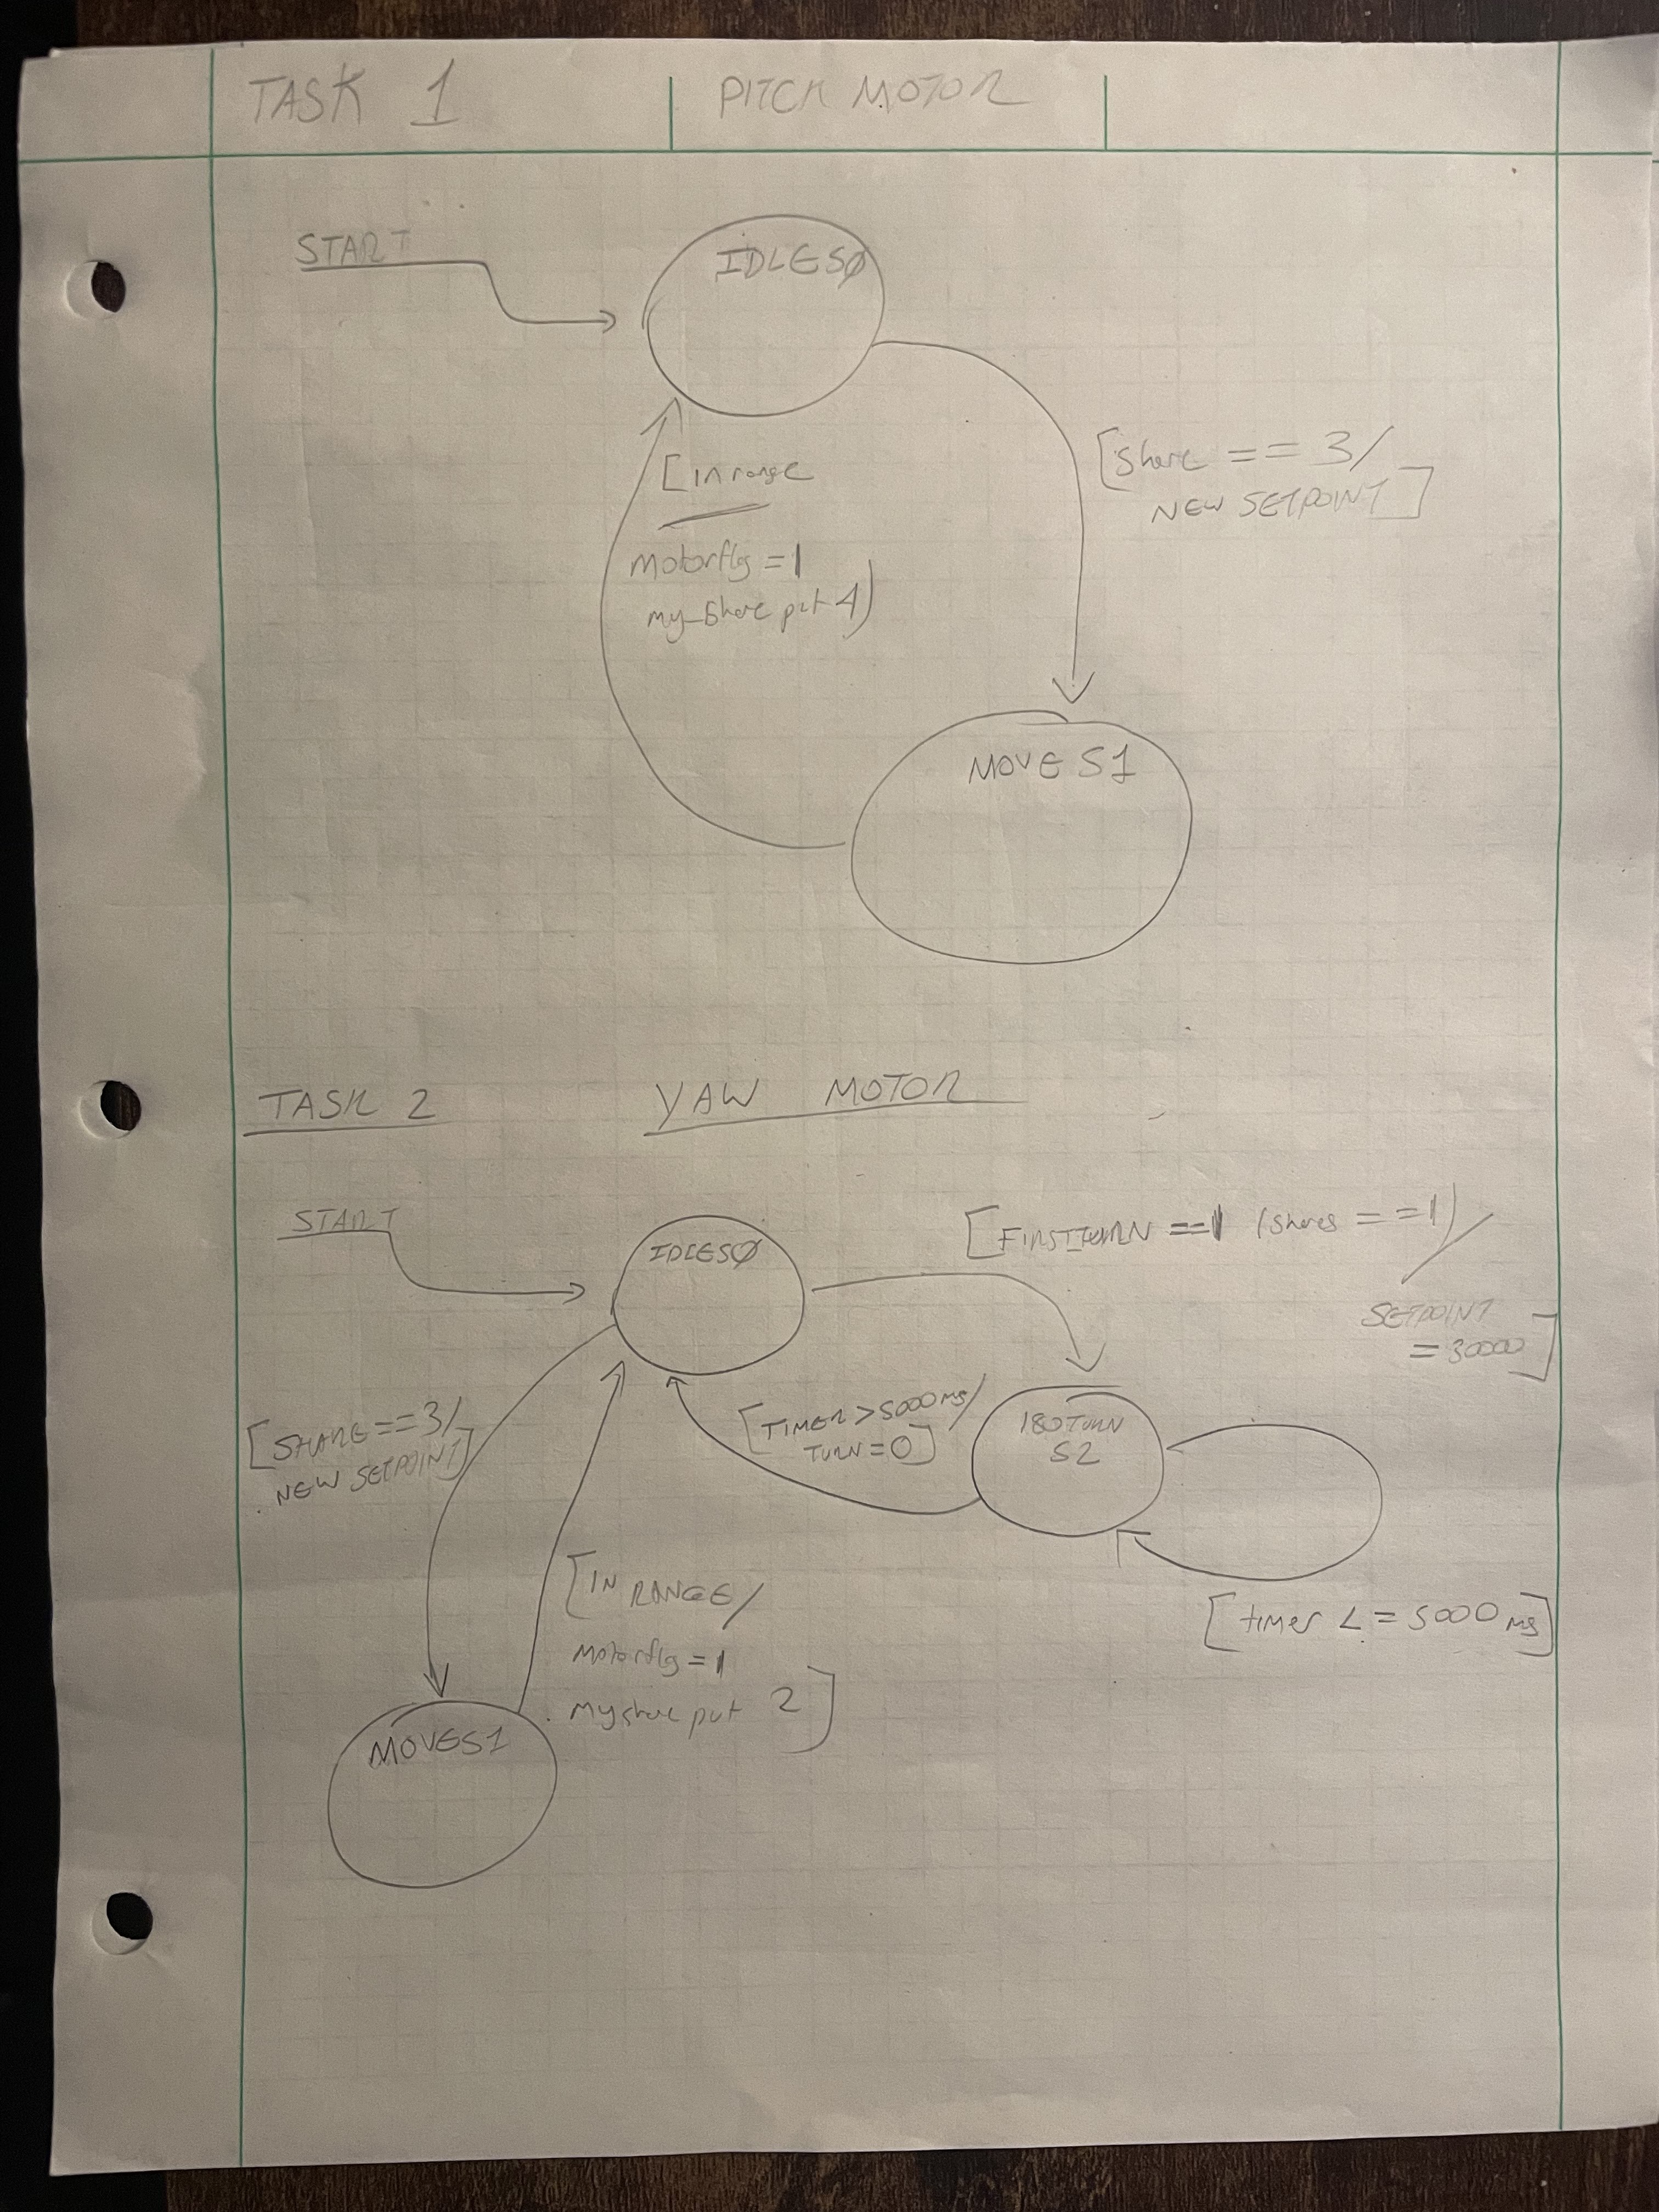 TASK 1 PITCH MOTOR
START
IDLE SØ
[Share == 3/
NEW SETPOINT]
[In range
motorflg = 1
my_share put 4)
MOVE S1
TASK 2 YAW MOTOR
START
IDLE SØ
[FIRSTTURN == 1 (shares == 1)/
SETPOINT
= 30000]
[TIMER > 5000 ms/
TURN = 0]
180 TURN
S2
[SHARE == 3/
NEW SETPOINT]
[IN RANGE/
Motorflg = 1
my share put 2]
[timer <= 5000 ms]
MOVE S1